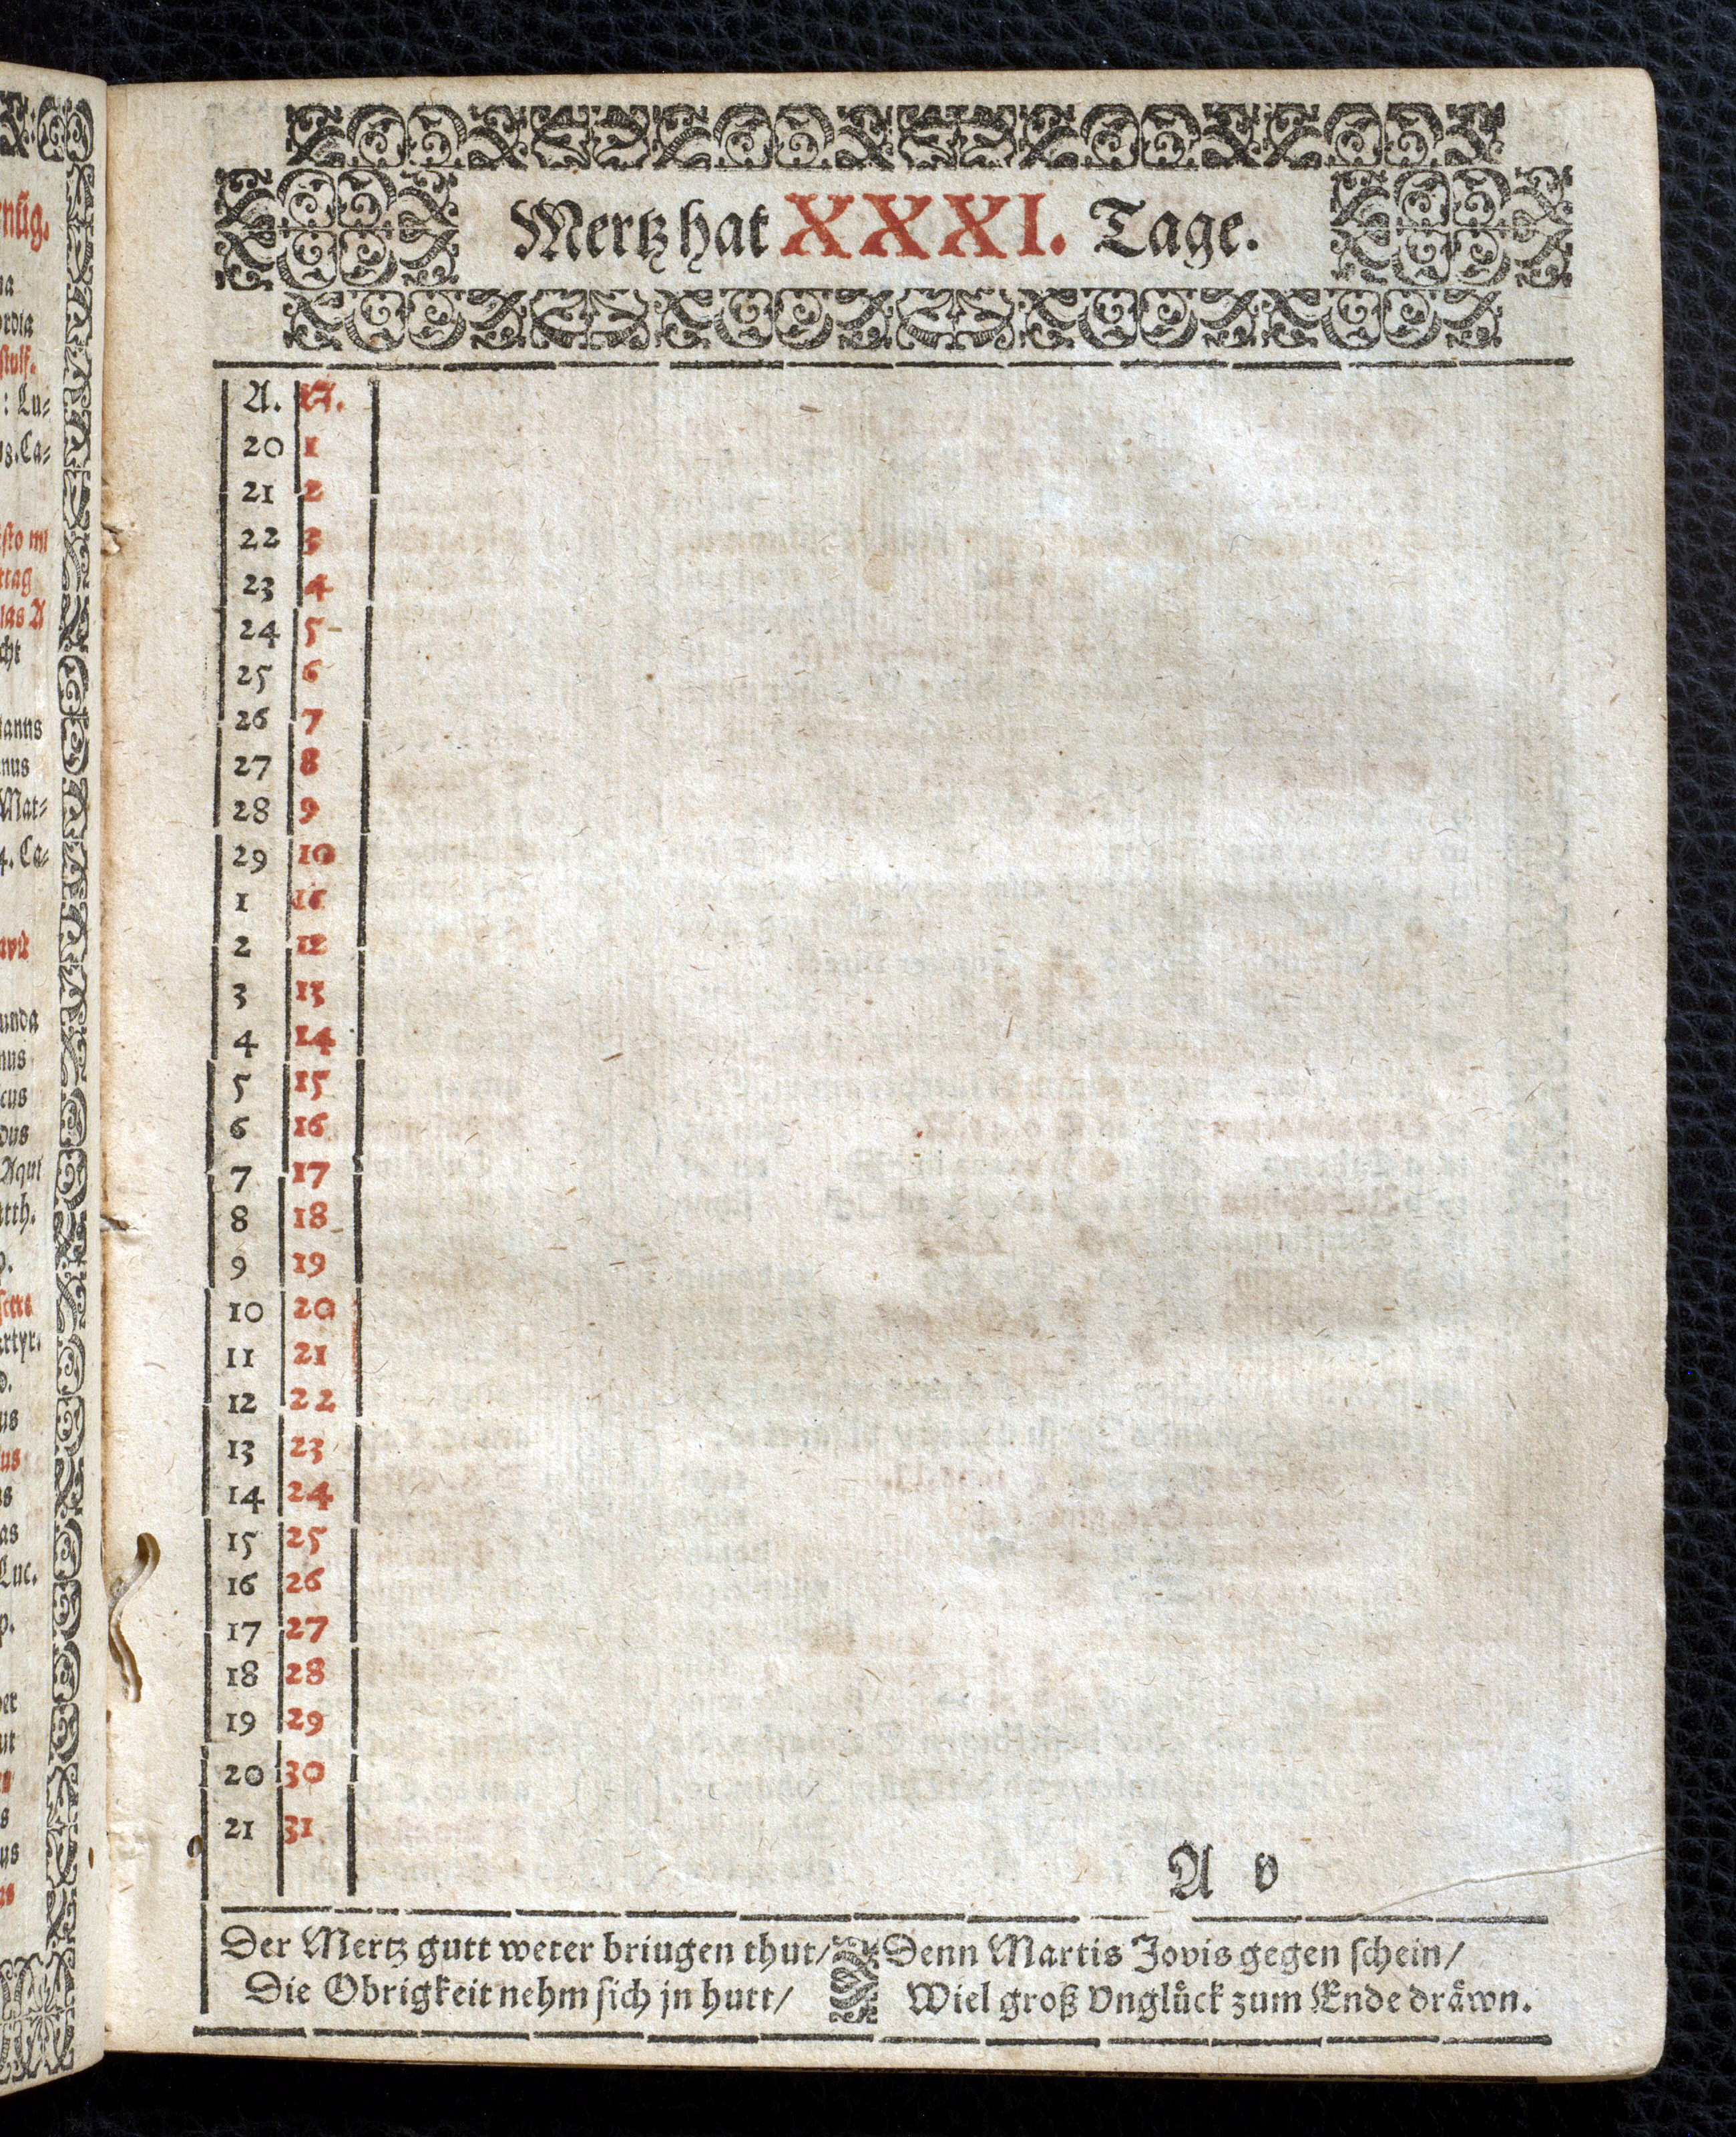 Mertz hat XXXI. Tage.
A. N.
20 1
21 2
22 3
23 4
24 5
25 6
26 7
27 8
28 9
29 10
1 11
2 12
3 13
4 14
5 15
6 16
7 17
8 18
9 19
10 20
11 21
12 22
13 23
14 24
15 25
16 26
17 27
18 28
19 29
20 30
21 31
A v
Der Mertz gutt weter bringen thut/
Die Obrigkeit nehm sich jn hutt/
Denn Martis Jovis gegen schein/
Wiel groß vnglück zum Ende dräwn.